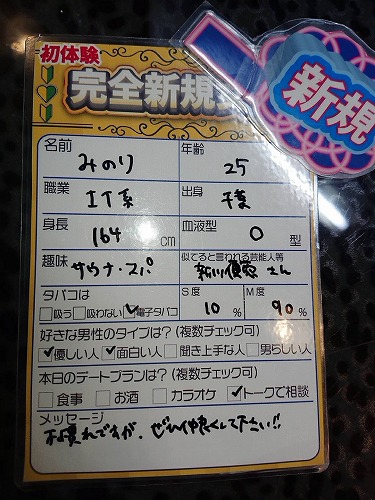 初体験
完全新規
新規
名前 みのり 年齢 25
職業 IT系 出身 千葉
身長 164 cm 血液型 O 型
趣味 サウナ・スパ 似てると言われる芸能人等 新川優愛 さん
タバコは S度 M度
□吸う □吸わない ☑電子タバコ 10 % 90 %
好きな男性のタイプは?(複数チェック可)
☑優しい人 ☑面白い人 □聞き上手な人 □男らしい人
本日のデートプランは?(複数チェック可)
□食事 □お酒 □カラオケ ☑トークで相談
メッセージ
不慣れですが、ぜひ仲良くして下さい!!